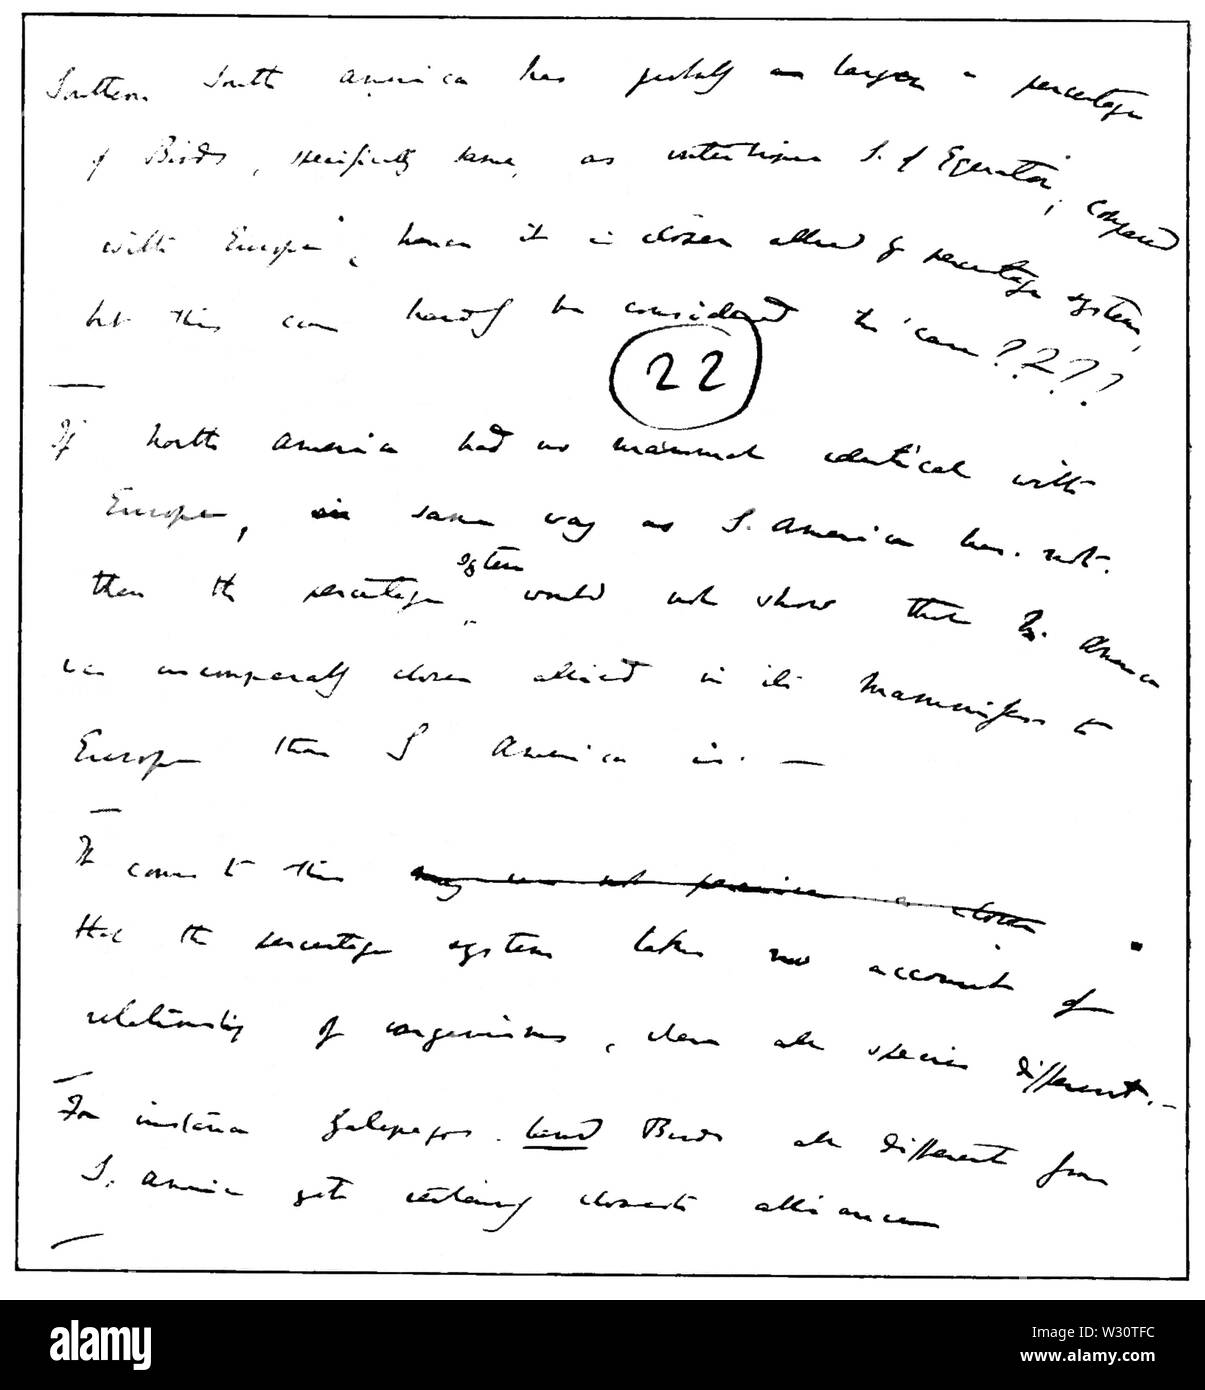 Southern South America has probably as large a percentage
of Birds, specifically same, as intertropica S. of Equator, compared
with Europe, hence it is closer allied by percentage system,
but this can hardly be considered the case????
22
If North America had no mammal identical with
Europe, in same way as S. America has not.
then the percentage system would not show that N. America
was incomparably closer allied in its Mammifers to
Europe than S America is. —
It comes to this
that the percentage system takes no account of
relationship of organisms, when all species different. —
For instance Galapagos land Birds all different from
S. America yet certainly closest alliance
alamy
Image ID: W30TFC
www.alamy.com